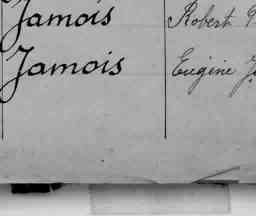 Jamois Robert
Jamois Eugène